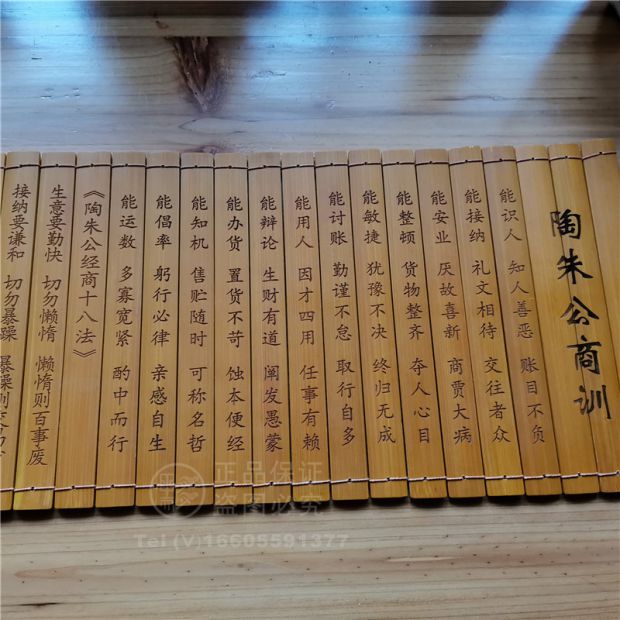 陶朱公商训
能识人 知人善恶 账目不负
能接纳 礼文相待 交往者众
能安业 厌故喜新 商贾大病
能整顿 货物整齐 夺人心目
能敏捷 犹豫不决 终归无成
能讨账 勤谨不怠 取行自多
能用人 因才四用 任事有赖
能辩论 生财有道 阐发愚蒙
能办货 置货不苛 蚀本便经
能知机 售贮随时 可称名哲
能倡率 躬行必律 亲感自生
能运数 多寡宽紧 酌中而行
《陶朱公经商十八法》
生意要勤快 切勿懒惰 懒惰则百事废
接纳要谦和 切勿暴躁 暴躁则交易
正品保证
盗图必究
Tel (V)16605591377